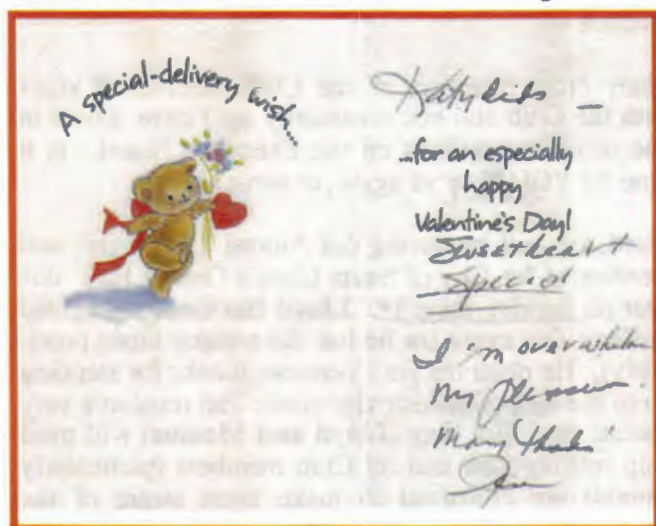 A special-delivery wish...
Katydids —
...for an especially
happy
Valentine's Day!
Sweetheart
Special
I'm overwhelm
My pleasure.
Many thanks!